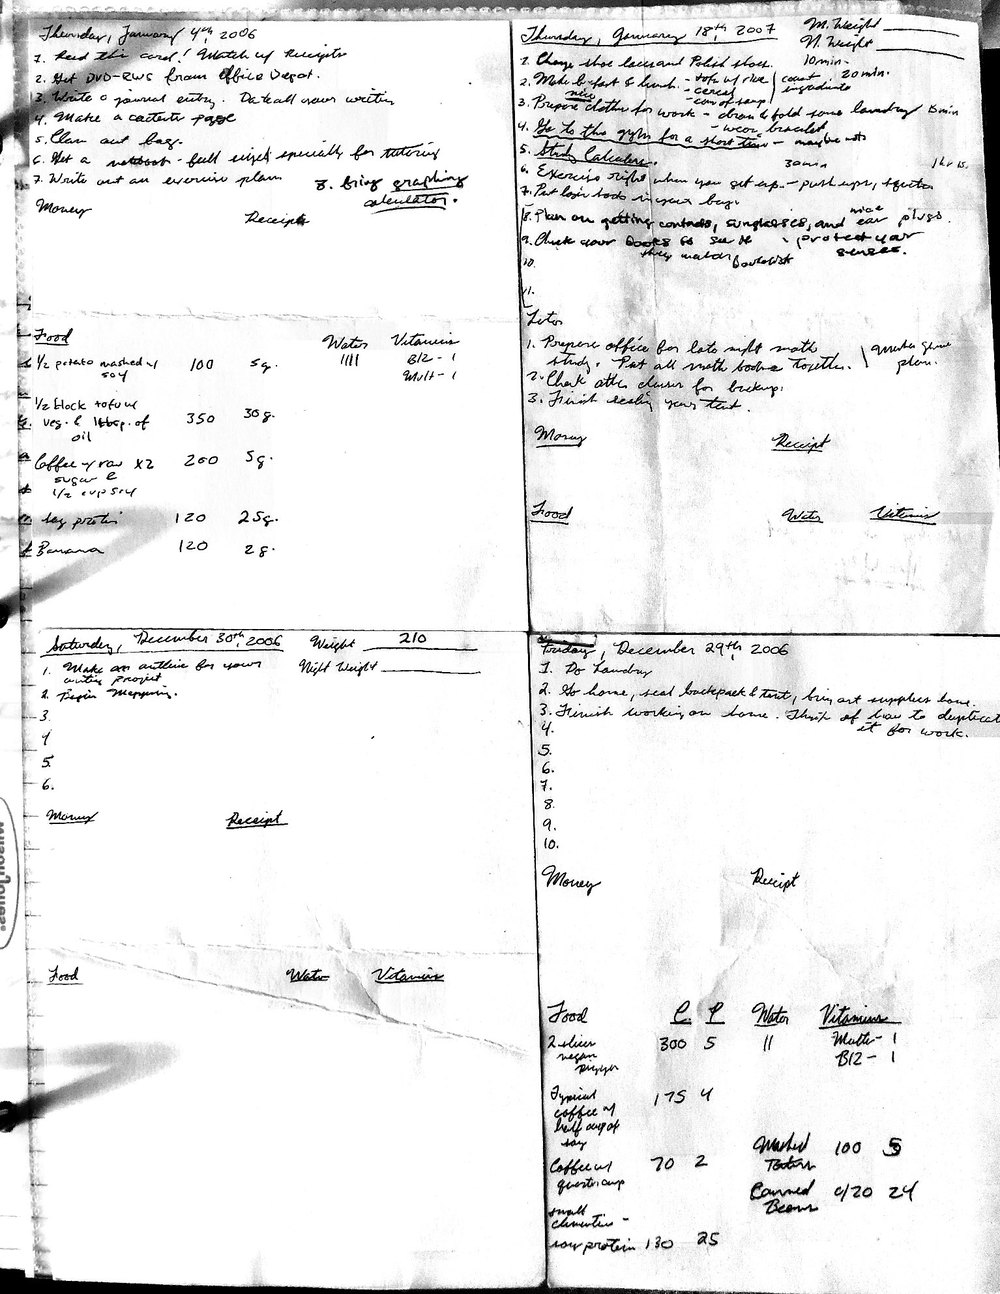 Thursday, January 4th, 2006
1. Read this card! Match w/ Receipts
2. Get DVD-RWS from Office Depot.
3. Write a journal entry. Date all your writing
4. Make a contents page
5. Clean out bag.
6. Get a notebook - full sized specially for tutoring
7. Write out an exercise plan
8. bring graphing
calculator.
Money
Receipt
Food
Water
Vitamins
1/2 potato mashed w/
soy
100
5g.
||||
B12 - 1
Mult - 1
1/2 block tofu w/
veg. & 1 tbsp. of
oil
350
30g.
Coffee w/ raw x2
sugar &
1/2 cup soy
200
5g.
soy protein
120
25g.
Banana
120
2g.
Thursday, January 18th, 2007
M. Weight
N. Weight
1. Change shoe laces and Polish shoes.
10 min.
2. Make b-fast & lunch. - tofu w/ rice
- cereal
- can of soup
count
ingredients
20 min.
3. Prepare nice clothes for work - clean & fold some laundry
15 min
- wear bracelet
4. Go to the gym for a short time - maybe not
5. Study Calculus.
30 min
1 hr 15.
6. Exercise right when you get up. - push ups, squats
7. Put in your bag.
8. Plan on getting contacts, sunglasses, and nice ear plugs.
9. Check your books to see if
they match booklist
- protect your
senses.
10.
11.
Later
1. Prepare office for late night math
study. Put all math books together.
Make plan.
2. Check other classes for backup.
3. Finish reading your text.
Money
Receipt
Food
Water
Vitamin
Saturday, December 30th, 2006
Weight
210
Night Weight
1. Make an outline for your
writing project
2. Begin Mapping.
3.
4
5.
6.
Money
Receipt
Food
Water
Vitamins
Friday, December 29th, 2006
1. Do Laundry
2. Go home, seal backpack & tent, bring art supplies home.
3. Finish working on home. Think of how to duplicate
it for work.
4.
5.
6.
7.
8.
9.
10.
Money
Receipt
Food
C.
P
Water
Vitamins
2 slices
vegan
pizza
300
5
||
Multi - 1
B12 - 1
Typical
coffee w/
half cup of
soy
175
4
Coffee w/
quarter cup
70
2
Mashed
Potatoes
100
5
Canned
Beans
420
24
small
clementine -
soy protein
130
25
Wilson Jones